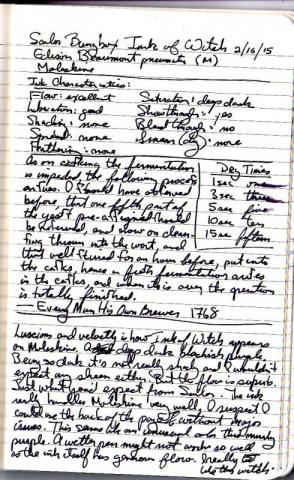 Sailor Bungbox Ink of Witch 2/16/15
Edison Beaumont pneumatic (M)
Moleskine
Ink Characteristics:
Flow: excellent Saturation: deep dark
Lubrication: good Showthrough: yes
Shading: none Bleedthrough: no
Spread: none Smear (dry): none
Feathering: none
As on the fermentation
is impeded, the following process
ensues. I should have observed
before, that one fifth part of
the yeast pre-assigned should
be reserved, and done on
ting thrown into the wort, and
that well stirred for an hour before, put into
the casks, hence a fresh fermentation arises
in the casks, and when it is over the operation
is totally finished.
Dry Times
1sec one
3sec three
5sec five
10sec ten
15sec fifteen
Every Man His Own Brewer 1768
Luscious and velvety is how Ink of Witch appears
on Moleskine. A deep dark blackish purple.
Being so dark it's not really shady and I wouldn't
expect any sheen either. But the flow is superb.
Just what I'd expect from Sailor. The ink
really handles Moleskine very well. I suspect I
could use the back of the page without major
issues. This seems like an unusual color this murky
purple. A wetter pen might not work so well
as the ink itself has generous flow. I really do
like this witch.